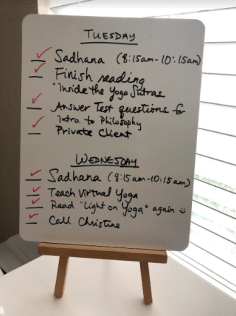 TUESDAY
Sadhana (8:15am-10:15am)
Finish reading
"Inside the Yoga Sutras
Answer Test questions for
Intro to Philosophy
Private Client
WEDNESDAY
Sadhana (8:15am-10:15am)
Teach Virtual Yoga
Read "Light on Yoga" again
Call Christine